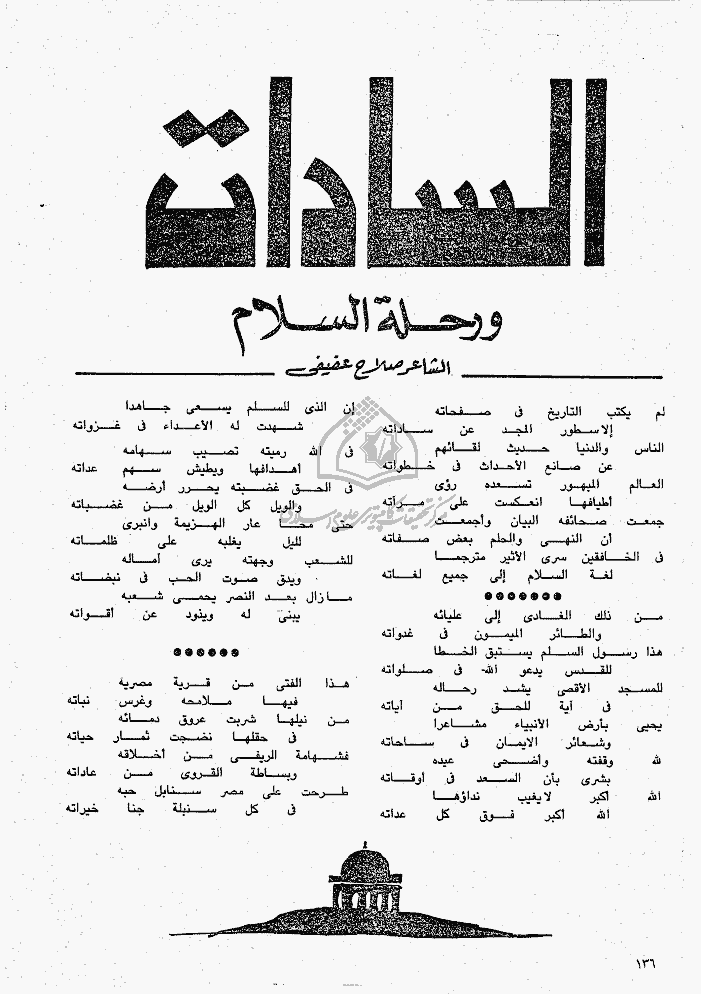 السادات
ورحلة السلام
الشاعر صلاح عفيفى
لم يكتب التاريخ فى صفحاته
إلا سطور المجد عن ساداته
الناس والدنيا حديث لقائهم
عن صانع الأحداث فى خطواته
العالم المبهور تسعده رؤى
أطيافها انعكست على مرآته
جمعت صحائفه البيان وأجمعت
أن النهى والحلم بعض صفاته
فى الخافقين سرى الأثير مترجما
لغة السلام إلى جميع لغاته
من ذلك الغادى إلى عليائه
والطائر الميمون فى غدواته
هذا رسول السلم يستبق الخطا
للقدس يدعو الله فى صلواته
للمسجد الأقصى يشد رحاله
فى آية للحق من آياته
يحيى بأرض الأنبياء مشاعرا
وشعائر الايمان فى ساحاته
لله وقفته وأضحى عيده
بشرى بأن السعد فى أوقاته
الله أكبر لا يغيب نداؤها
الله أكبر فوق كل عداته
إن الذى للسلم يسعى جاهدا
شهدت له الأعداء فى غزواته
فى الله رميته تصيب سهامه
أهدافها ويطيش سهم عداته
فى الحق غضبته يحرر أرضه
والويل كل الويل من غضباته
حتى محا عار الهزيمة وانبرى
لليل يغلبه على ظلماته
للشعب وجهته يرى أماله
ويدق صوت الحب فى نبضاته
مازال بعد النصر يحمى شعبه
يبنى له ويذود عن أقواته
هذا الفتى من قرية مصرية
فيها ملامحه وغرس نباته
من نيلها شربت عروق دمائه
فى حقلها نضجت ثمار حياته
فشهامة الريفى من أخلاقه
وبساطة القروى من عاداته
طرحت على مصر سنابل حبه
فى كل سنبلة جنا خيراته
١٣٦